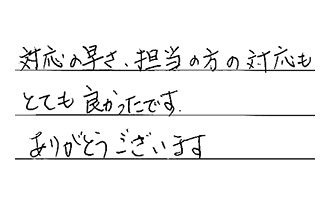 対応の早さ、担当の方の対応も
とても良かったです.
ありがとうございます